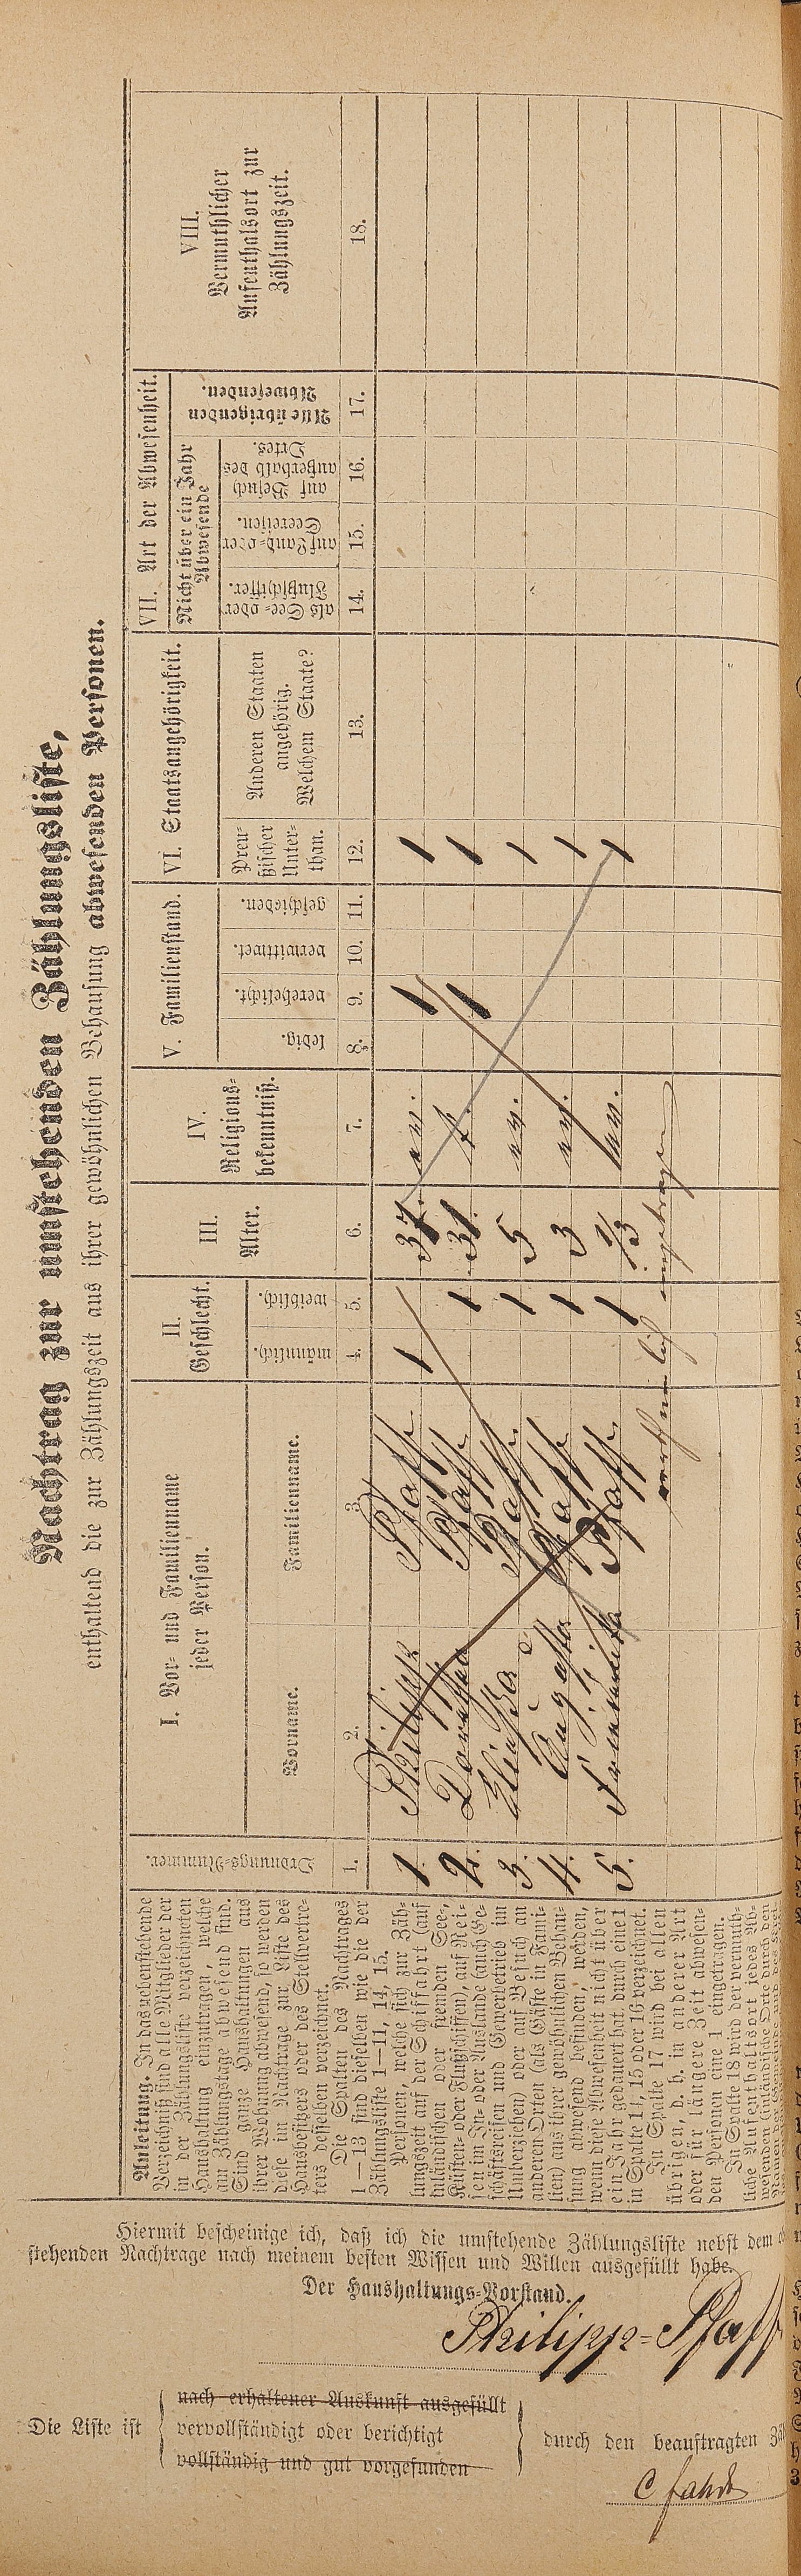 Nachtrag zur umstehenden Zählungsliste,
enthaltend die zur Zählungszeit aus ihrer gewöhnlichen Behausung abwesenden Personen.
Anleitung. In das nebenstehende
Verzeichniß sind alle Mitglieder der
in der Zählungsliste verzeichneten
Haushaltung einzutragen, welche
am Zählungstage abwesend sind.
Sind ganze Haushaltungen aus
ihrer Wohnung abwesend, so werden
diese im Nachtrage zur Liste des
Hausbesitzers oder des Stellvertre-
ters desselben verzeichnet.
Die Spalten des Nachtrages
1—13 sind dieselben wie die der
Zählungsliste 1—11, 14, 15.
Personen, welche sich zur Zäh-
lungszeit auf der Schifffahrt (auf
inländischen oder fremden See-,
Küsten- oder Flußschiffen), auf Rei-
sen im In- oder Auslande (auch Ge-
schäftsreisen und Gewerbebetrieb im
Umherziehen) oder auf Besuch an
anderen Orten (als Gäste in Fami-
lien) aus ihrer gewöhnlichen Behau-
sung abwesend befinden, werden,
wenn diese Abwesenheit nicht über
ein Jahr gedauert hat, durch eine 1
in Spalte 14, 15 oder 16 verzeichnet.
In Spalte 17 wird bei allen
übrigen, d. h. in anderer Art
oder für längere Zeit abwesen-
den Personen eine 1 eingetragen.
In Spalte 18 wird der vermuth-
liche Aufenthaltsort jedes Ab-
wesenden (inländische Orte durch den
Ordnungs-Nummer.
I. Vor- und Familienname
jeder Person.
Vorname.
Familienname.
II.
Geschlecht.
männlich.
weiblich.
III.
Alter.
IV.
Religions-
bekenntniß.
V. Familienstand.
ledig.
verehelicht.
verwittwet.
geschieden.
VI. Staatsangehörigkeit.
Preu-
ßischer
Unter-
than.
Anderen Staaten
angehörig.
Welchem Staate?
VII. Art der Abwesenheit.
Nicht über ein Jahr
Abwesende
als See- oder
Flußschiffer.
auf Land- oder
Seereisen.
auf Besuch
außerhalb des
Ortes.
Alle übrigen
Abwesenden.
VIII.
Vermuthlicher
Aufenthalsort zur
Zählungszeit.
1. 2. 3. 4. 5. 6. 7. 8. 9. 10. 11. 12. 13. 14. 15. 16. 17. 18.
1. Philipp Pfaff 1 37. ev. 1 1
2. Dorothea Pfaff 1 31. k. 1 1
3. Pfaff 1 5 ev. 1
4. Augusta Pfaff 1 3 ev. 1
5. Pfaff 1 1/3 ev. 1
eingetragen
Hiermit bescheinige ich, daß ich die umstehende Zählungsliste nebst dem
stehenden Nachtrage nach meinem besten Wissen und Willen ausgefüllt habe.
Der Haushaltungs-Vorstand.
Philipp=Pfaff
Die Liste ist
nach erhaltener Auskunft ausgefüllt
vervollständigt oder berichtigt
vollständig und gut vorgefunden
durch den beauftragten